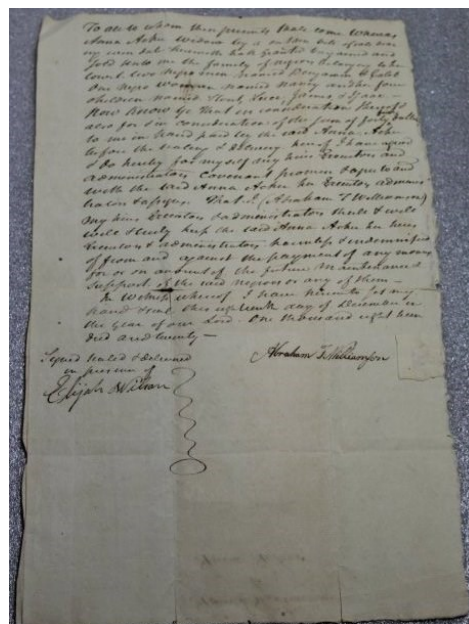 To all to whom these presents shall come Whereas
Anna Acker Widow by a certain bill of sale under
my even date herewith hath Granted bargained and
sold unto me the family of negroes belonging to her
two Negro men named Benjamin & Caleb
One Negro Woman named Nancy and her four
children named James & Isaac
Now Know Ye that in consideration thereof &
also for & in consideration of the sum of forty dollars
to me in hand paid by the said Anna Acker
before the sealing & delivery hereof I have agreed
& do hereby for myself my heirs Executors and
administrators Covenant promise & agree to and
with the said Anna Acker her Executors adminis
trators & assigns. That I (Abraham T Williamson)
my heirs Executors & administrators shall & will
well & truly keep the said Anna Acker her heirs
Executors & administrators harmless & indemnified
of from and against the payment of any money
for or on account of the future maintenance &
support of the said negroes or any of them —
In Witness whereof I have hereunto set my
hand & seal this eighteenth day of December in
the year of our Lord One thousand eight hun
dred and twenty —
Signed sealed & delivered
in presence of
Abraham T Williamson
Elijah Wilson